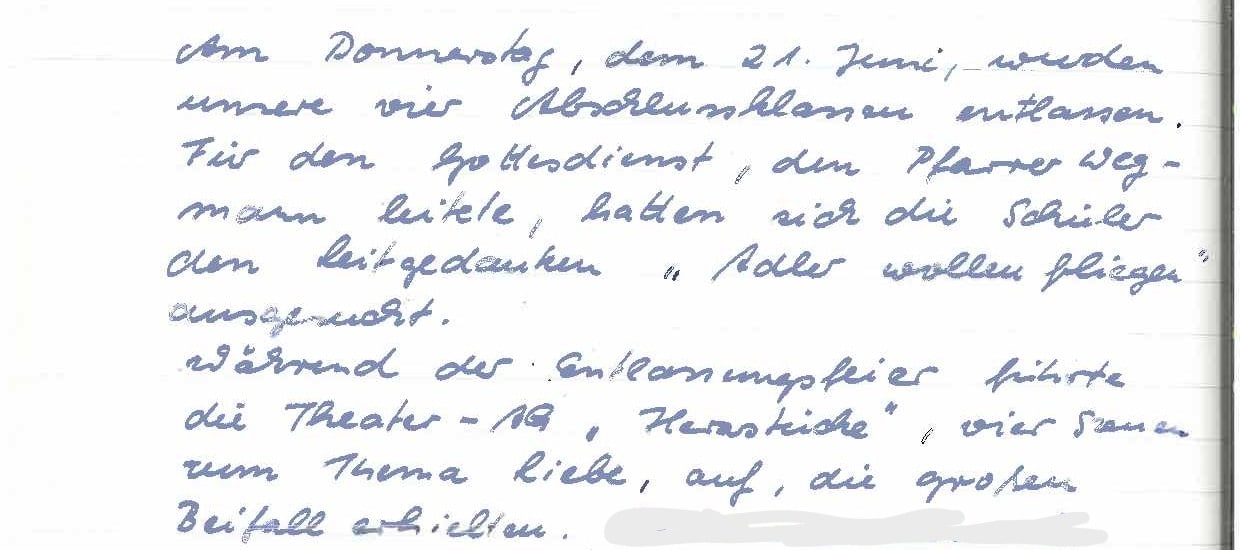 Am Donnerstag, dem 21. Juni, wurden
unsere vier Abschlussklassen entlassen.
Für den Gottesdienst, den Pfarrer Weg-
mann leitete, hatten sich die Schüler
den Leitgedanken „Adler wollen fliegen"
ausgesucht.
Während der Entlassungsfeier führte
die Theater-AG „Herzstiche", vier Szenen
zum Thema Liebe, auf, die großen
Beifall erhielten.